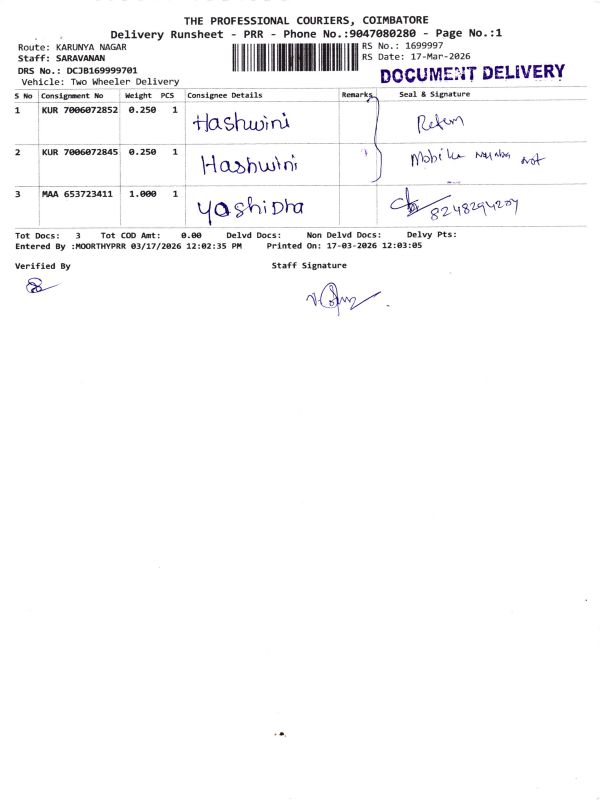 THE PROFESSIONAL COURIERS, COIMBATORE
Delivery Runsheet - PRR - Phone No.:9047080280 - Page No.:1
Route: KARUNYA NAGAR
RS No.: 1699997
Staff: SARAVANAN
RS Date: 17-Mar-2026
DRS No.: DCJB169999701
DOCUMENT DELIVERY
Vehicle: Two Wheeler Delivery
S No Consignment No Weight PCS Consignee Details Remarks Seal & Signature
1 KUR 7006072852 0.250 1 Hashwini Return
2 KUR 7006072845 0.250 1 Hashwini Mobile not
3 MAA 653723411 1.000 1 Yashidha 8248294207
Tot Docs: 3 Tot COD Amt: 0.00 Delvd Docs: Non Delvd Docs: Delvy Pts:
Entered By :MOORTHYPRR 03/17/2026 12:02:35 PM Printed On: 17-03-2026 12:03:05
Verified By Staff Signature